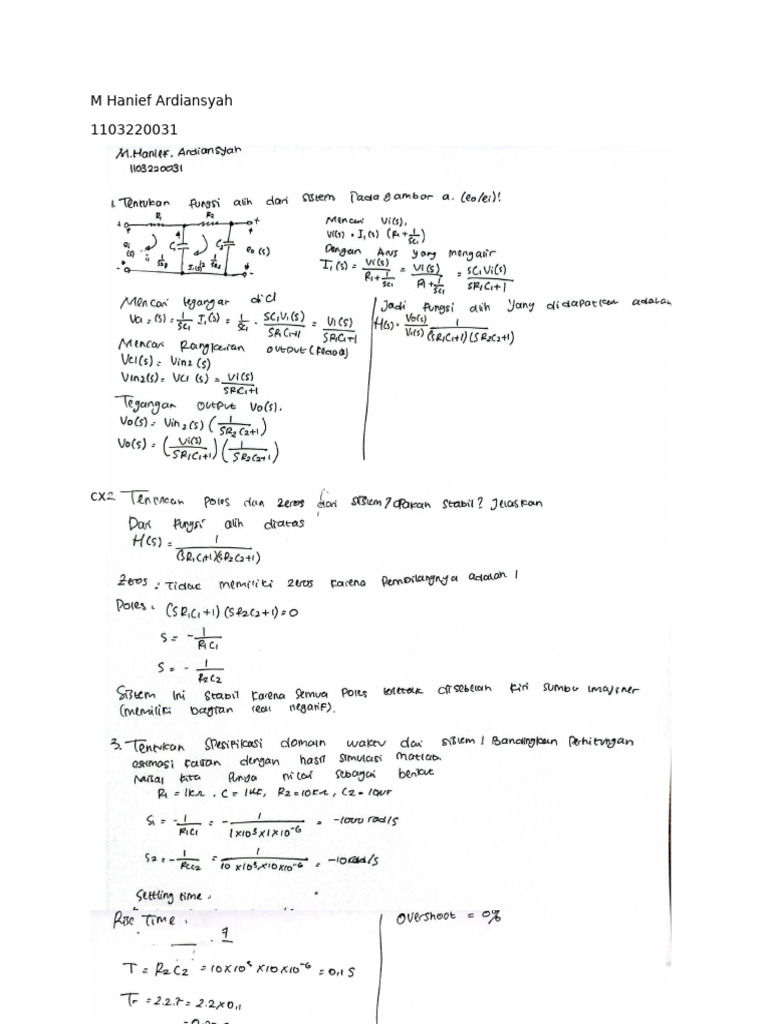 M Hanief Ardiansyah
1103220031
M.Hanief. Ardiansyah
1103220031
1. Tentukan fungsi alih dari sistem Pada gambar a. (eo/ei)!
R1 R2
C1 C2 eo(s)
Mencari Vi(s),
Vi(s) = I1(s) (R1 + 1/SC1)
Dengan Arus yang mengalir
I1(s) = Vi(s)/(R1+1/SC1) = Vi(s)/(R1+1/SC1) = SC1Vi(s)/(SR1C1+1)
Mencari tegangan di C1
Vc1 = (s) = 1/SC1 I1(s) = 1/SC1 . SC1Vi(s)/(SR1C1+1) = Vi(s)/(SR1C1+1)
Mencari Rangkaian output
Vc1(s) = Vin2(s)
Vin2(s) = Vc1(s) = Vi(s)/(SRC1+1)
Tegangan output Vo(s).
Vo(s) = Vin2(s) (1/(SR2C2+1))
Vo(s) = (Vi(s)/(SR1C1+1)) (1/(SR2C2+1))
Jadi fungsi alih yang didapatkan adalah
H(s) = Vo(s)/Vi(s) 1/((SR1C1+1)(SR2C2+1))
CX2. Tentukan Poles dan Zeros dari sistem? apakah stabil? Jelaskan
Dari fungsi alih diatas
H(s) = 1/((SR1C1+1)(SR2C2+1))
Zeros : Tidak memiliki zeros karena Pembilangnya adalah 1
Poles. (SR1C1+1) (SR2C2+1) = 0
S = - 1/R1C1
S = - 1/R2C2
Sistem ini stabil karena semua Poles terletak disebelah kiri sumbu imajiner
(memiliki bagian real negatif).
3. Tentukan Spesifikasi domain waktu dari sistem! Bandingkan Perhitungan
estimasi kalian dengan hasil simulasi matlab.
Misal kita Punya nilai sebagai berikut
R1 = 1kΩ, C = 1μF, R2 = 10kΩ, C2 = 10μF
S1 = -1/R1C1 = - 1/(1x10³x1x10⁻⁶) = -1000 rad/s
S2 = -1/R2C2 = 1/(10x10³x10x10⁻⁶) = -10 rad/s
Settling time.
Rise Time.
T = R2C2 = 10x10³x10x10⁻⁶ = 0,1 S
Tr = 2.2.T = 2.2x0,1
Overshoot = 0%